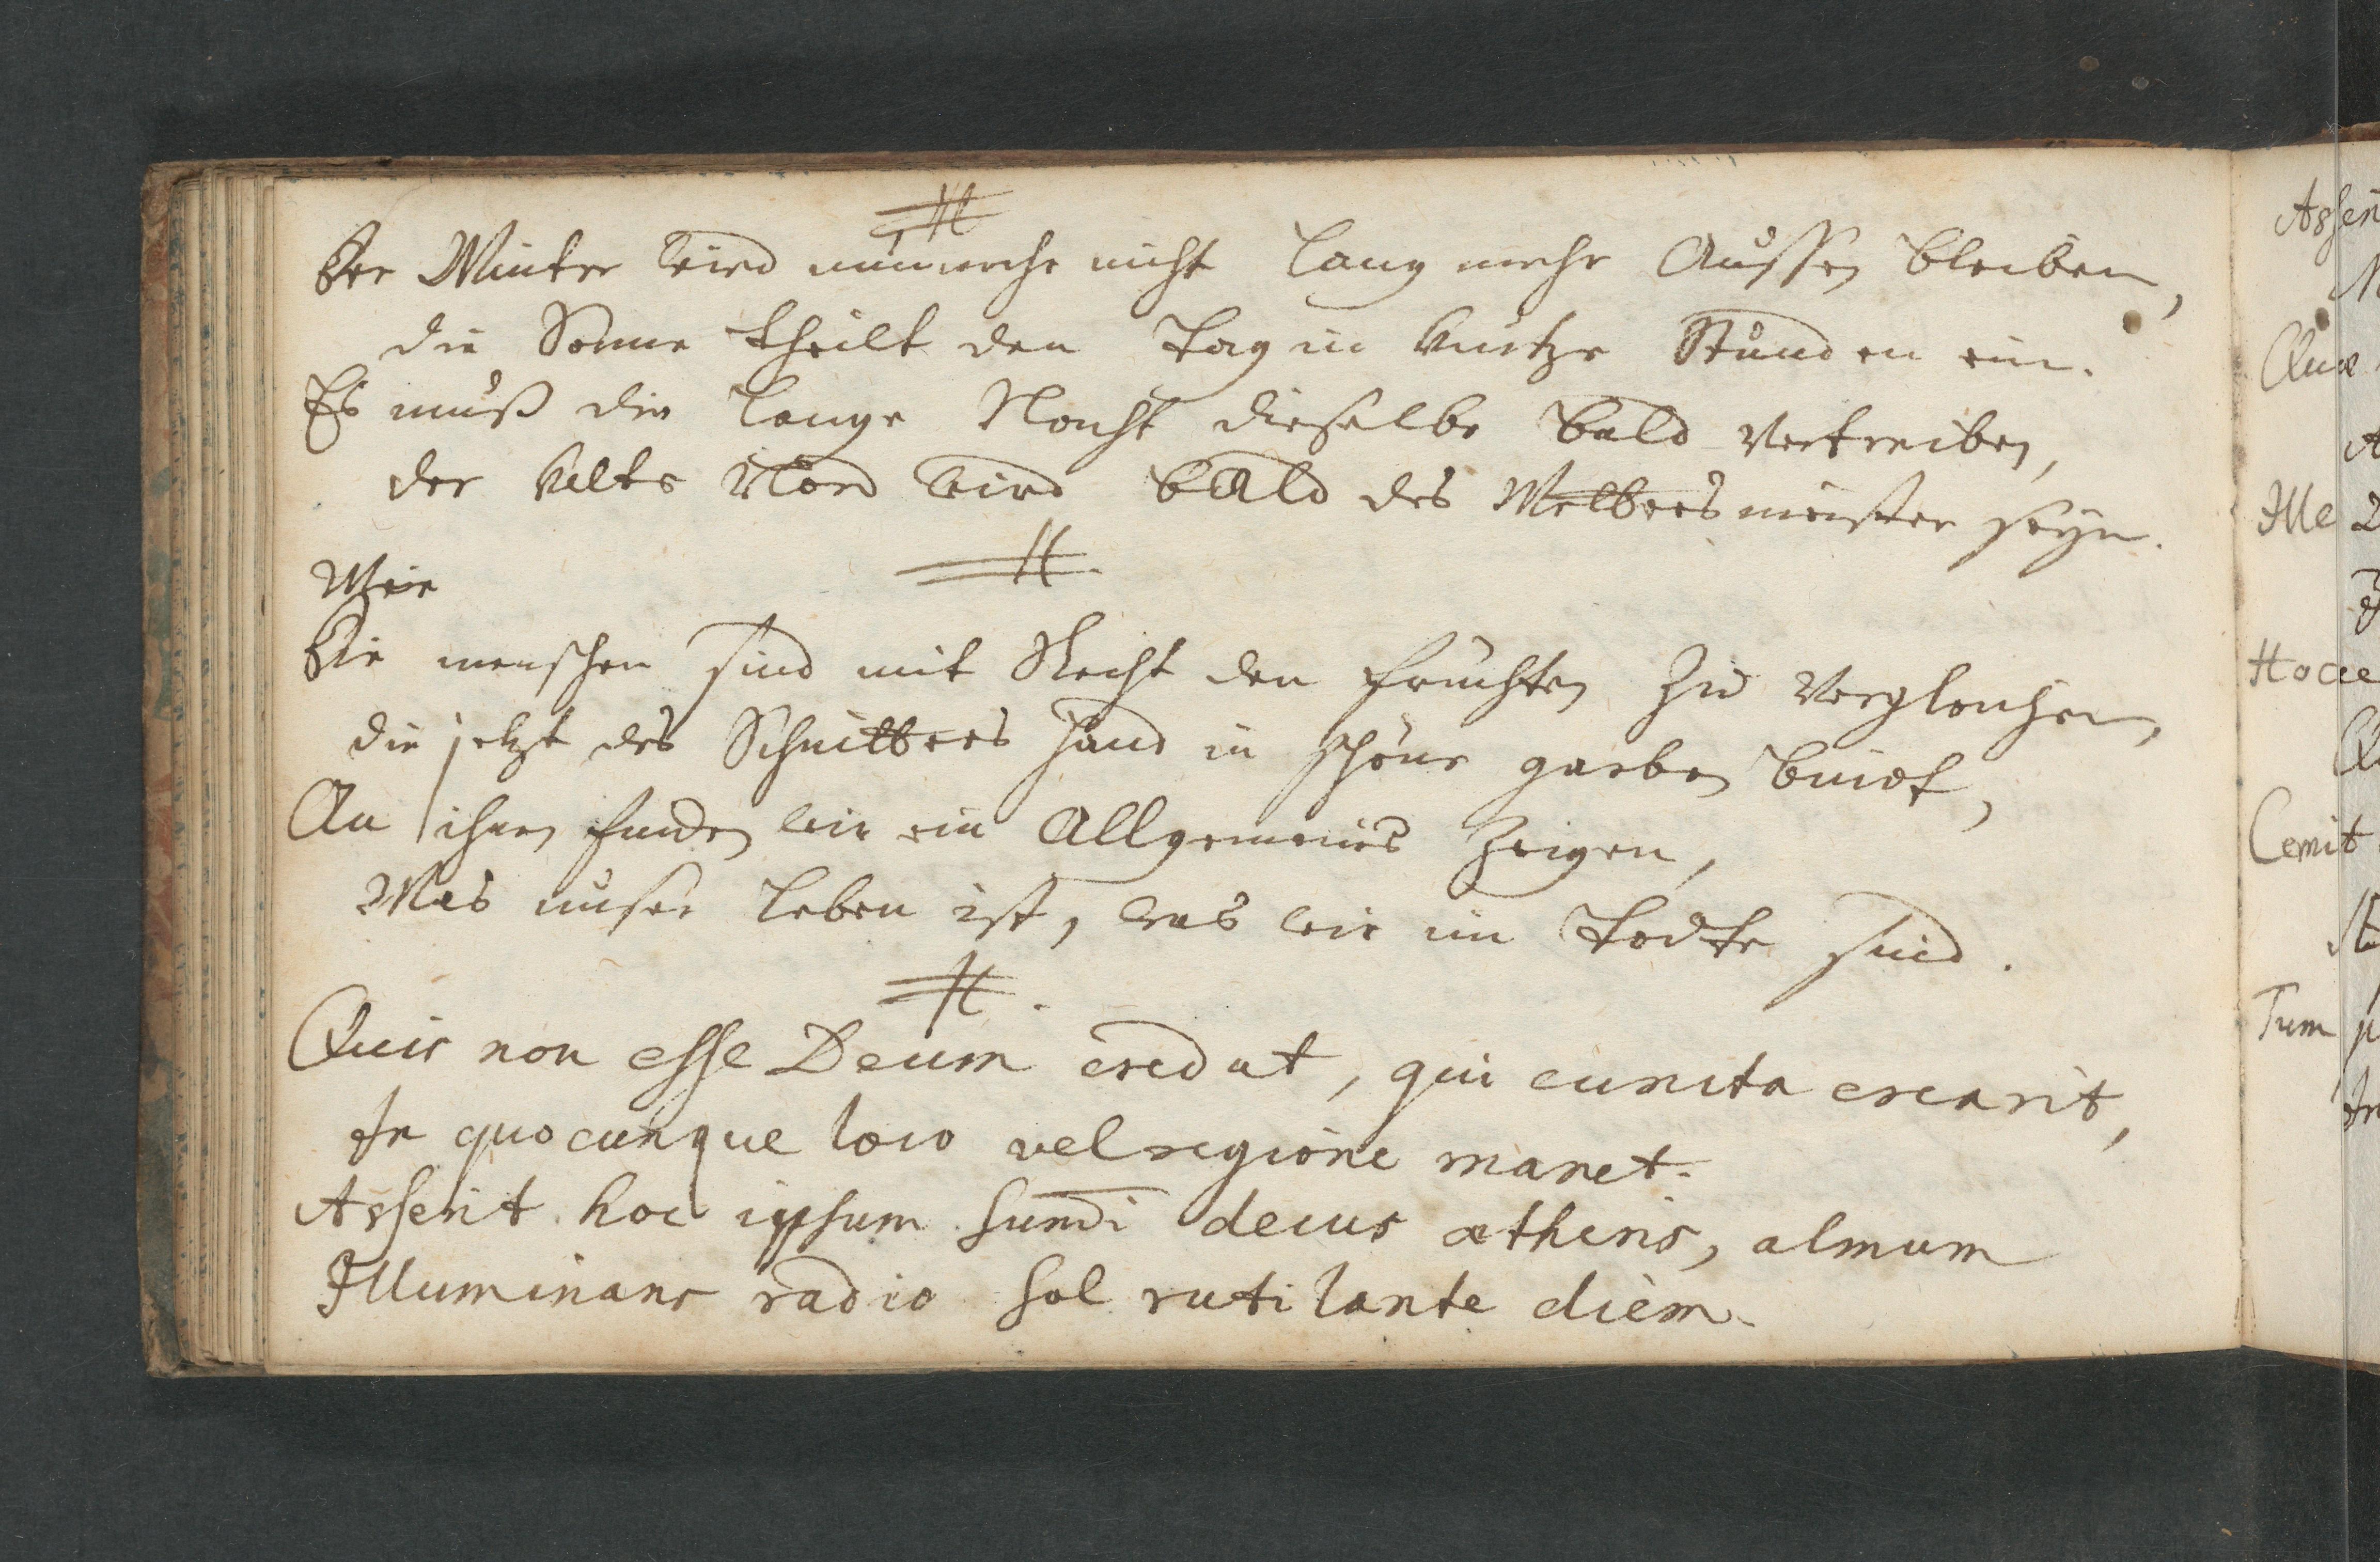 Der Winter wird nunmehr nicht lang mehr Aussen bleiben,
die Sonne theilt den Tag in kurtze Stunden ein.
Es muß die lange Nacht dieselbe bald vertreiben,
der kalte Nord wird bald des Welters meister seyn.
Wir
Die menschen sind mit Recht den früchten zu vergleichen,
die jetzt des Schnitters Hand in schöne garben bindt,
An ihnen finden wir ein Allgemeines Zeigen,
Was unser leben ist, was wir im Todte sind.
Quis non esse Deum credat, qui cuncta crearit,
In quocunque loco vel regione manet.
Asserit hoc ipsum sumi decus ætheris, almum
Illuminans radio sol rutilante diem.
Asserit
Quæ
Ille
Hocce
Cernit
Tum